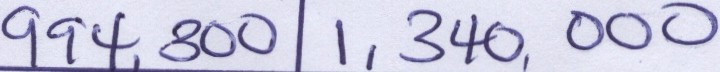 994,800 1,340,000